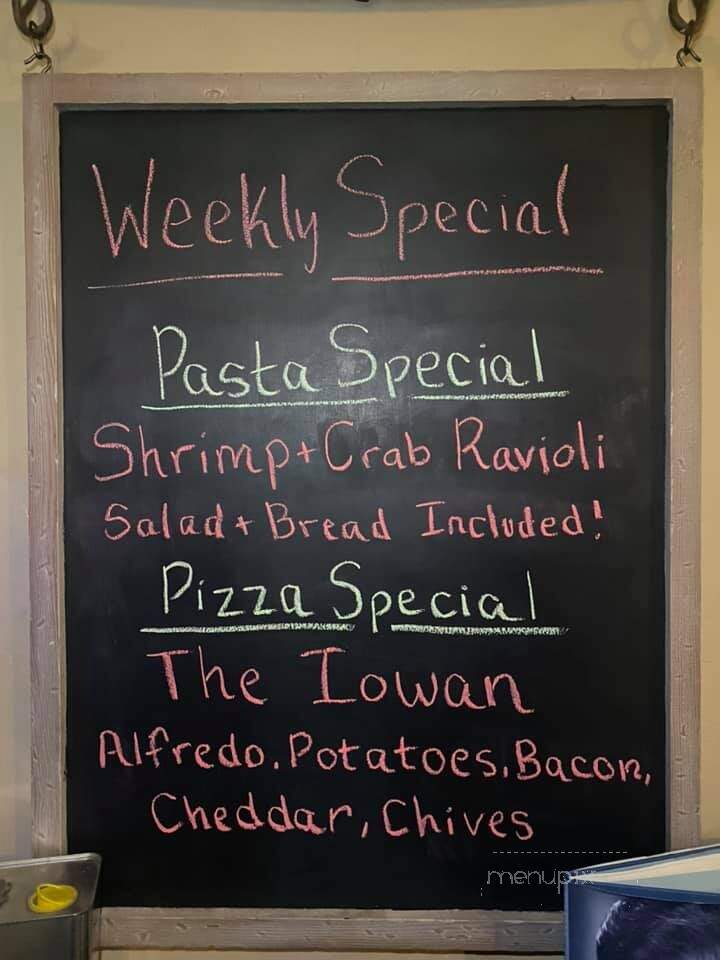 Weekly Special
Pasta Special
Shrimp+Crab Ravioli
Salad+Bread Included!
Pizza Special
The Iowan
Alfredo, Potatoes, Bacon,
Cheddar, Chives
menupix